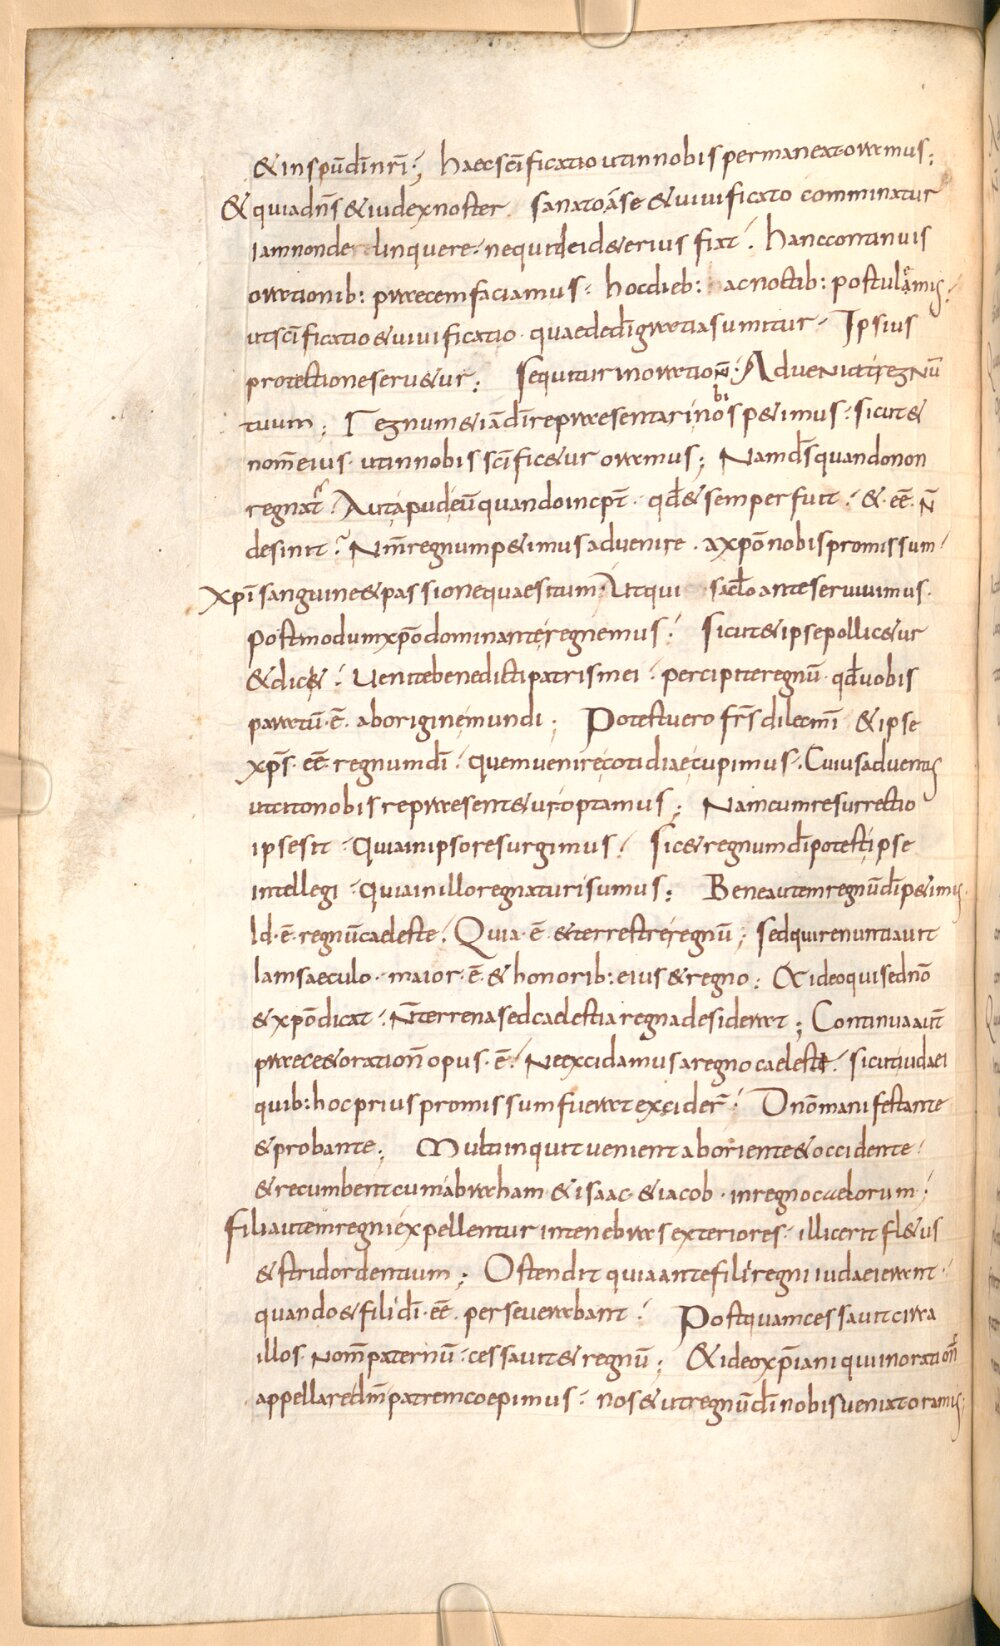 & in spū dī nrī ; haec scīficatio ut in nobis permaneat oramus ;
& quia dn̄s & iudex noster sanato a se & uiuificato comminatur
iam non derelinquere · ne quid ei deterius fiat · hanc continuis
orationib: praecem faciamus · hoc dieb: ac noctib: postulamus ·
ut scīficatio & uiuificatio quae de dī gratia sumitur · Ipsius
protectione seru&ur ; Sequitur in oration̄ · Adueniat regnū
tuum ; Regnum &iā dī repraesentari nobis p&imus · sicut &
nom̄ eius ut in nobis scīfic&ur oramus ; Nam d̄s quando non
regnat ? Aut apud eū quando incp̄t · qd̄ & semper fuit · & eē n̄
desinit ? Nr̄m regnum p&imus aduenire · a xp̄o nobis promissum ·
xp̄i sanguine & passione quaesitum · Ut qui saclo ante seruiuimus ·
postmodum xp̄o dominante regnemus · sicut & ipse pollic&ur
& dic& · Uenite benedicti patris mei · percipite regnū qd̄ uobis
paratū · ē · ab origine mundi ; Potest uero fr̄s dilecmī & ipse
xp̄s · eē · regnum dī · quem uenire cotidiae cupimus · Cuius aduentus
ut cito nobis repraesent&ur optamus ; Nam cum resurrectio
ipse sit · Quia in ipso resurgimus · sic & regnum dī potest ipse
intellegi · Quia in illo regnaturi sumus ; Bene autem regnū dī p&imus ·
Id · ē · regnū caeleste · Quia · ē · & terrestre regnū ; sed qui renuntiauit
iam saeculo · maior · ē · & honorib: eius & regno ; & ideo qui se dn̄o
& xp̄o dicat · N̄ terrena sed caelestia regna desiderat ; Continua aut̄
praece & oration̄ opus · ē · Ne excidamus a regno caeleste · sicut iudaei
quib: hoc prius promissum fuerat excider̄ · Dn̄o manifestante
& probante ; Multi inquit uenient ab oriente & occidente ·
& recumbent cum abraham & isaac & iacob · in regno caelorum ;
fili autem regni expellentur in tenebras exteriores · illic erit fl&us
& stridor dentium ; Ostendit quia ante fili regni iudaei erant ·
quando & fili dī · eē · perseuerabant · Postquam cessauit circa
illos nom̄ paternū · cessauit & regnū ; & ideo xp̄iani qui in oration̄
appellare dm̄ patrem coepimus · nos & ut regnū dī nobis ueniat oramus ;